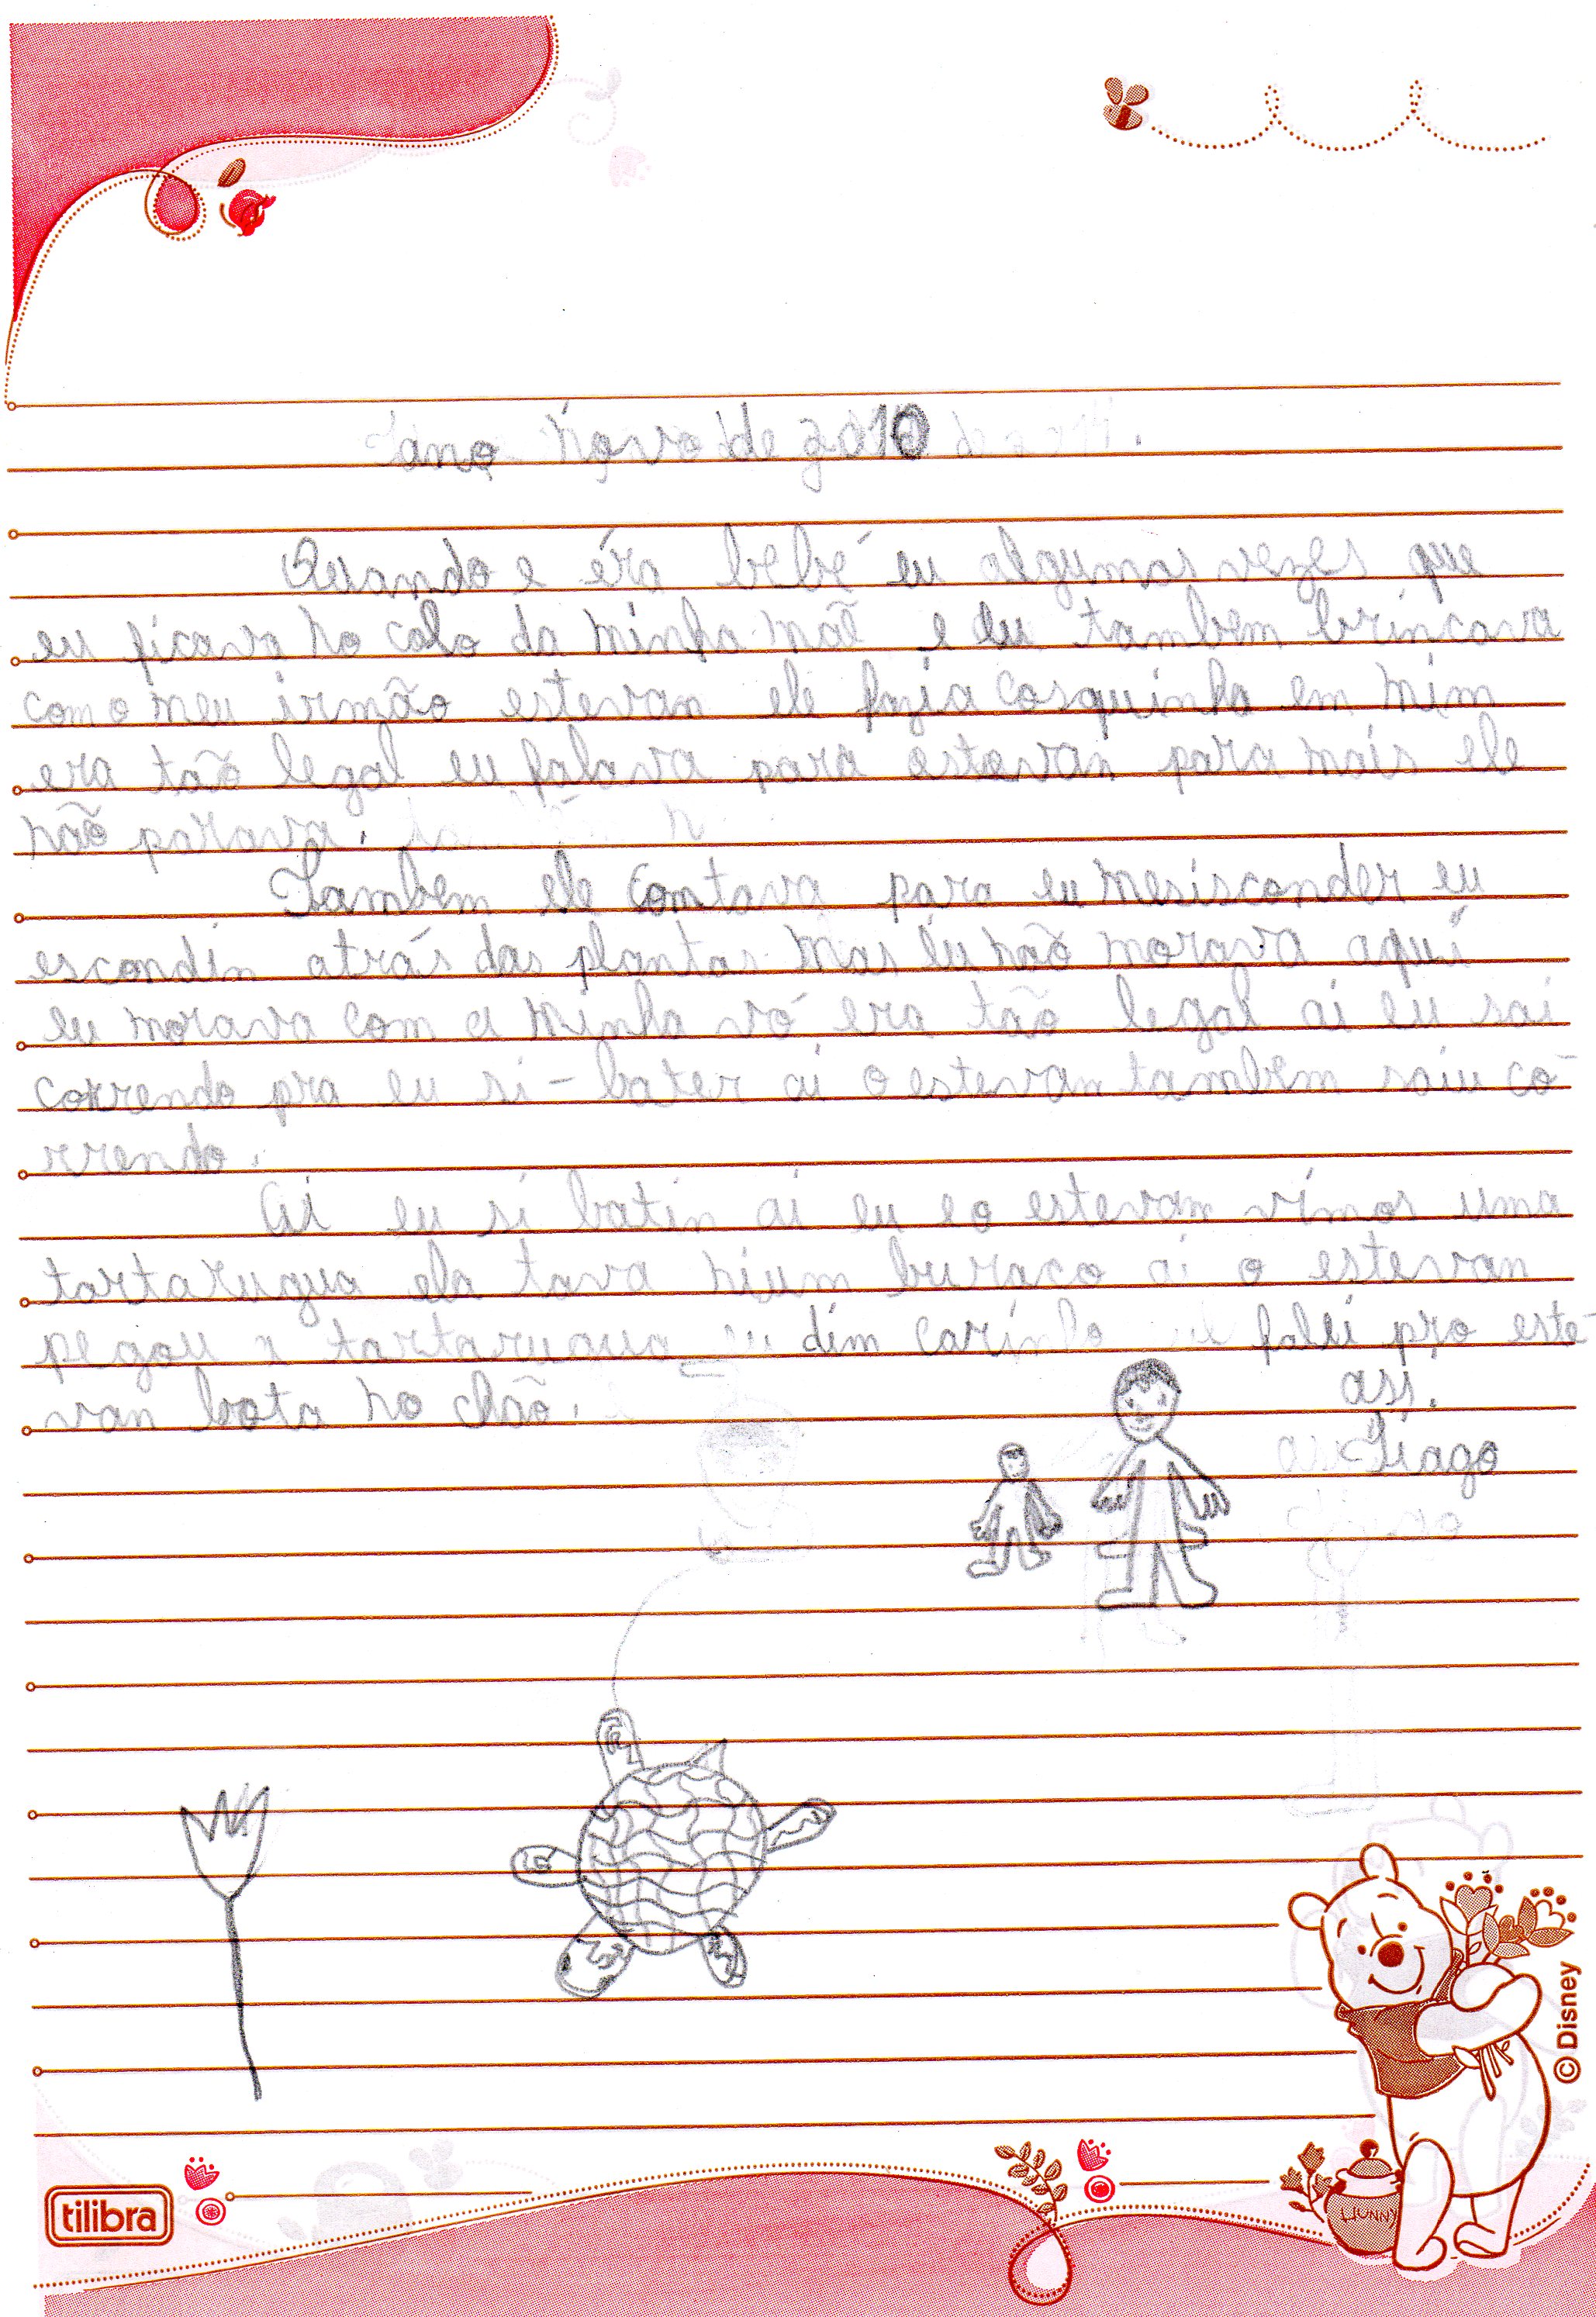 ano Novo de 2010
Quando e éra bebê eu algumas vezes que
eu ficava no colo da minha mãe e eu tambem brincava
com o meu irmão estevan ele fazia cosquinha em mim
era tão legal eu falava para estevan para mais ele
não parava.
Tambem ele contava para eu mesisconder eu
escondin atrás das plantas mas eu não morava aqui
eu morava com a minha vó era tão legal ai eu sai
correndo pra eu si-bater ai o estevan tambem saiu co-
rrendo.
Ai eu si batin ai eu e o estevan vimos uma
tartarugua ela tava nium buraco ai o estevan
pegou a tartarugua eu dim carinho falei pro este-
van bota no chão.
ass.
Tiago
HUNNY
© Disney
tilibra